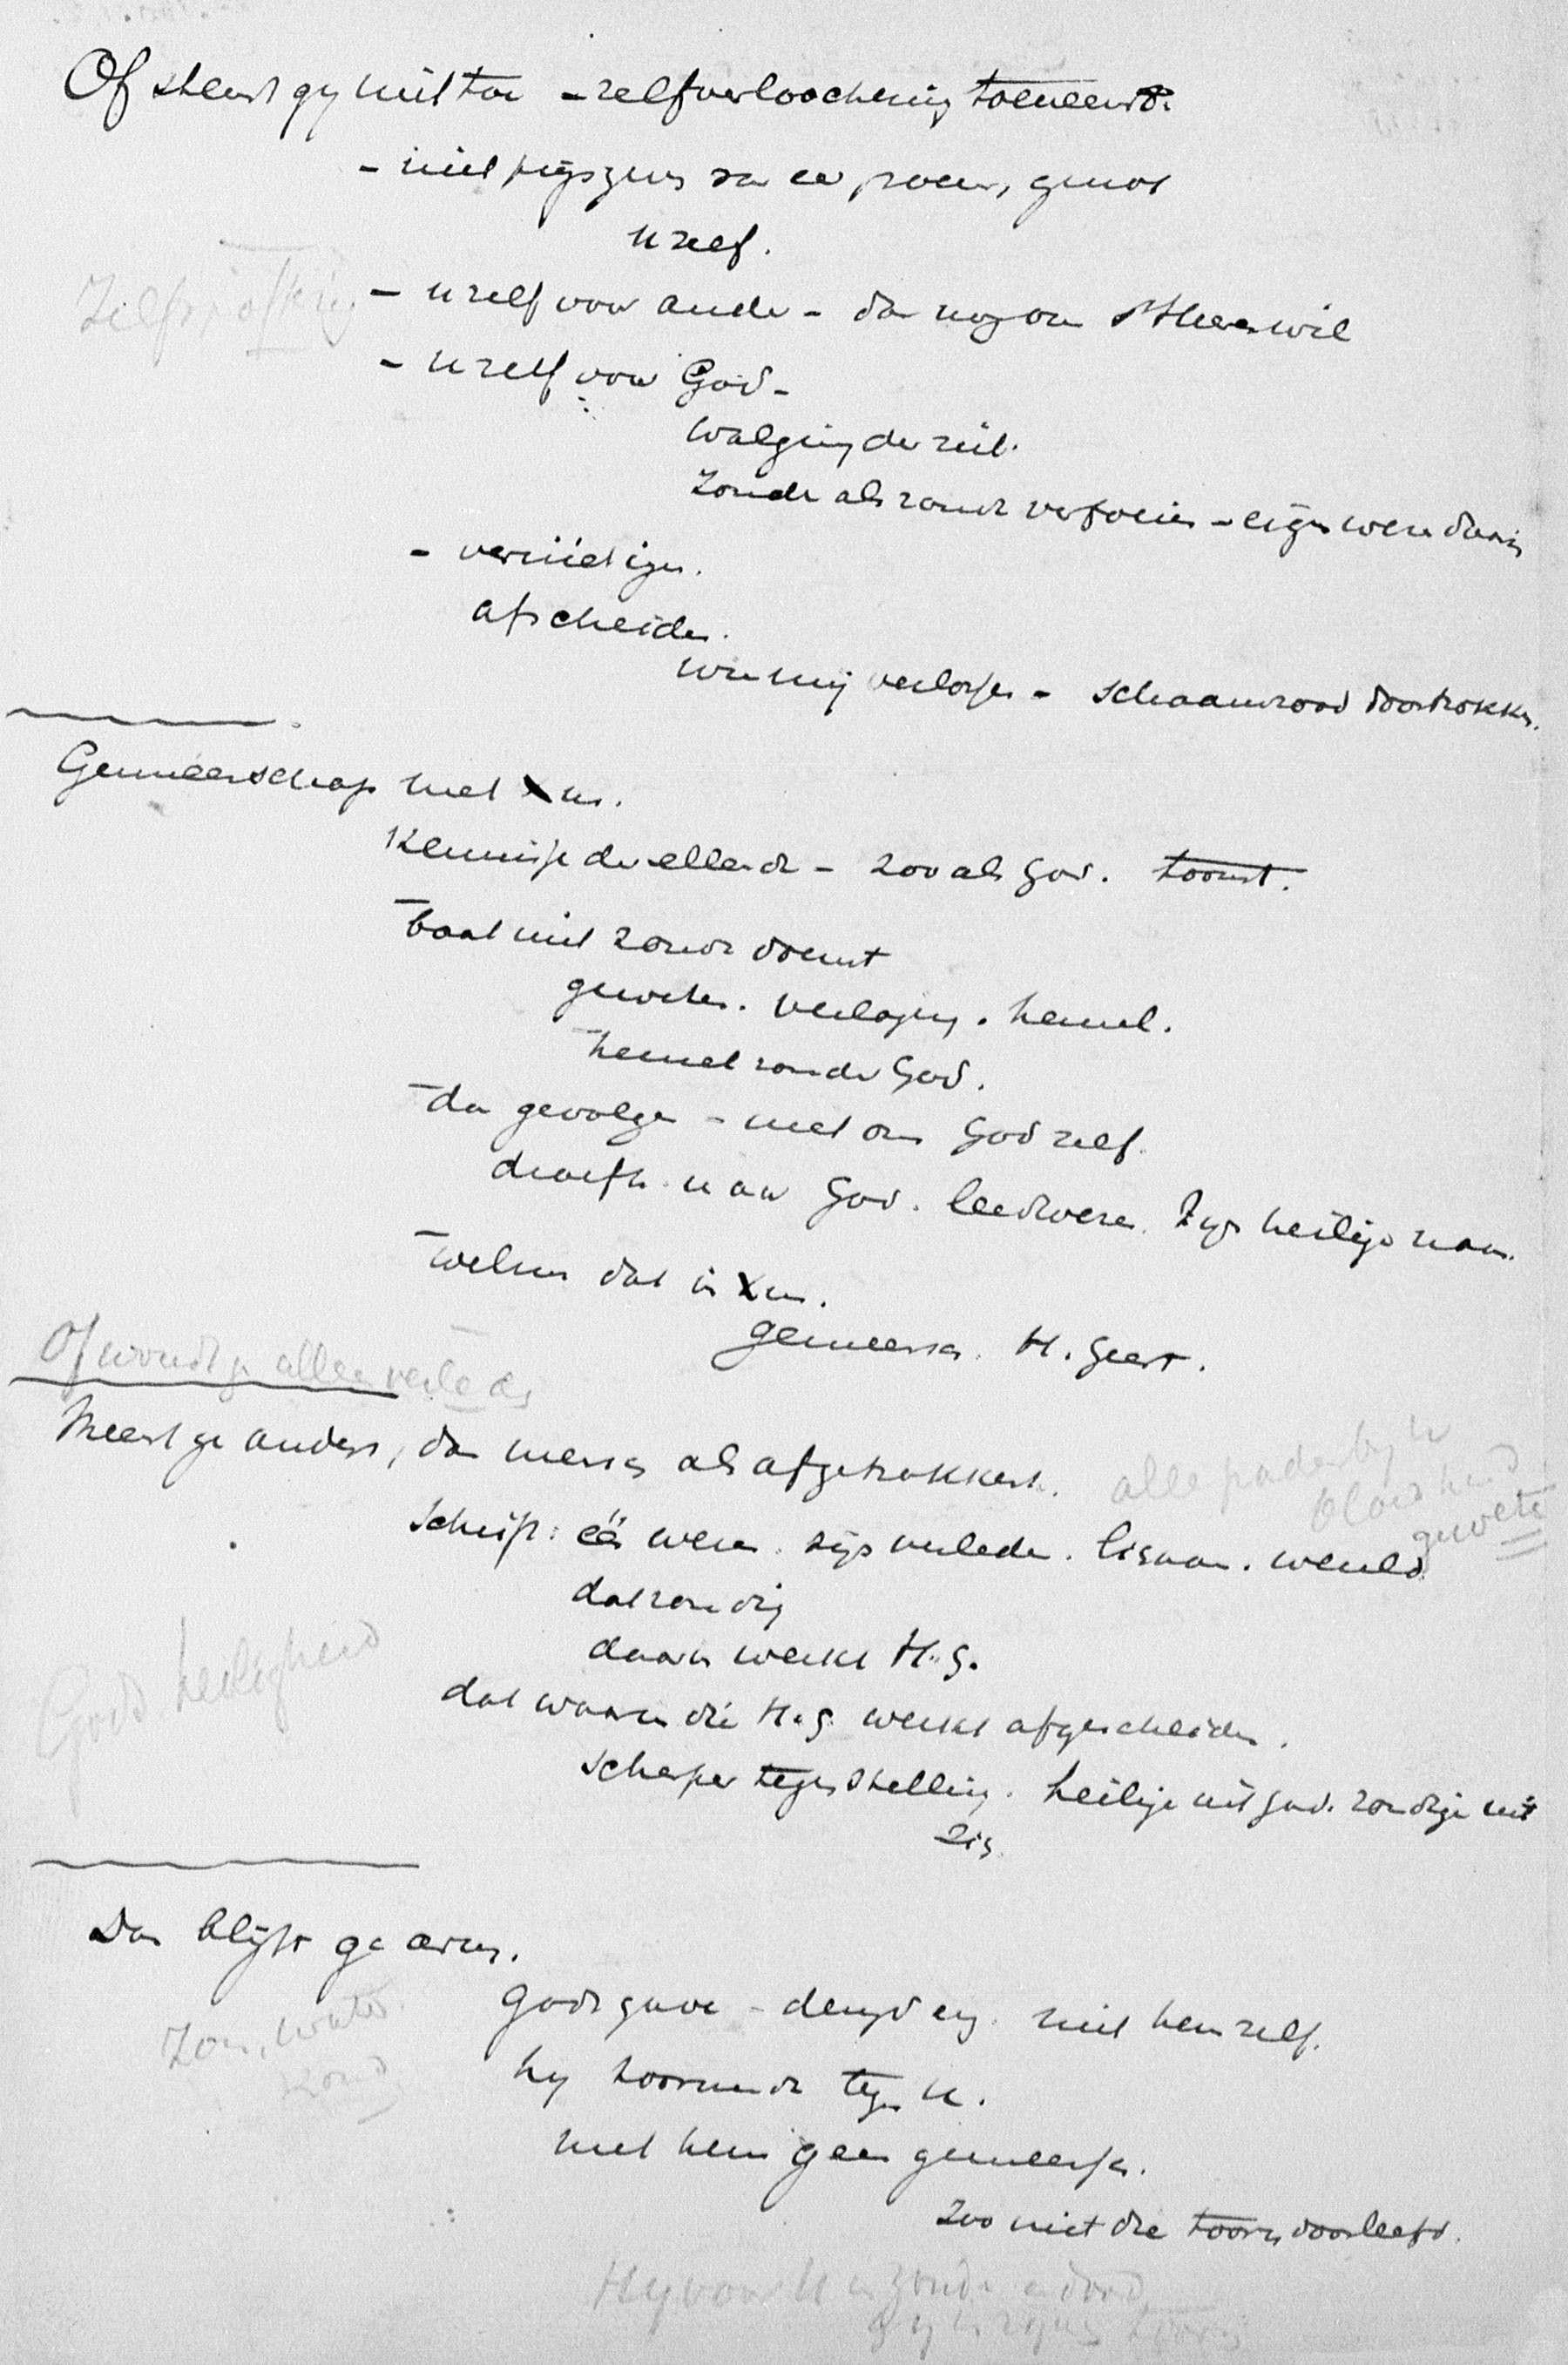 Of stemt gy niet toe – zelfverloochening toeneemt.
– niet prijsgeven van eer, roem, genot
uzelf.
Zelfs
– uzelf voor ander – dan nog om 's Heren wil
– uzelf voor God –
walging der ziel.
Zonde als zonde verfoeien – eigen wezen daarin
– vernietigen.
afscheiden.
wie mij verlossen – schaamrood doortrokken.
Gemeenschap met Xus.
Kennisse der ellende – zooals God. toornt.
– baat niet zonde doemt
geweten. verlaging. hemel.
– hemel zonder God.
– de gevolgen – niet om God zelf.
droefh. naar God. leedwezen. Zijn heilige naam.
– weten dat in Xus.
gemeensch. H. Geest.
Of wordt ge alleen verleden
Meent ge anders, dan mensch als afgetrokken.
alle paden by u
bloed hand
geweten
Schrift: één wezen. zijn verleden. lichaam. wereld
dat zondig
daarin werkt H.G.
Gods heiligheid
dat waarin die H.G. werkt afgescheiden.
scherpe tegenstelling. heilige uit God. zondige uit
zich
Dan blijft ge arm.
Gods gave – deugd en. niet hem zelf.
Zon, water
hy toornende tegen u.
met hem geen gemeensch.
Zoo niet die toorn doorleefd.
Hy voor u in zonde en dood
gy in zynen toorn